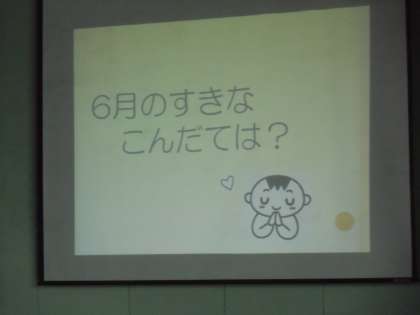 6月のすきな
こんだては？